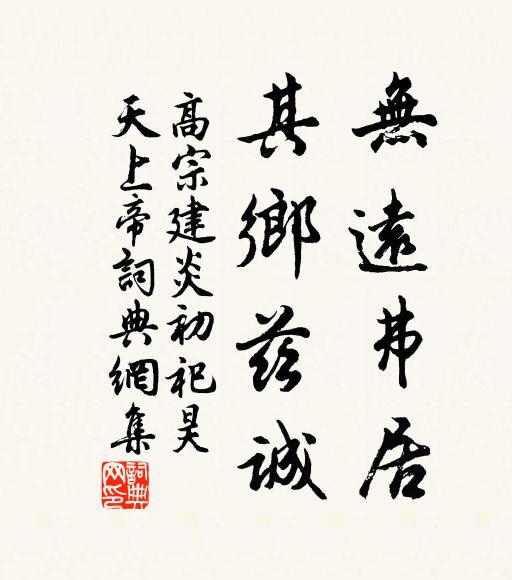 無遠弗居
其鄉茲誠
高宗建炎初祀昊
天上帝詞典網集
詞典網印